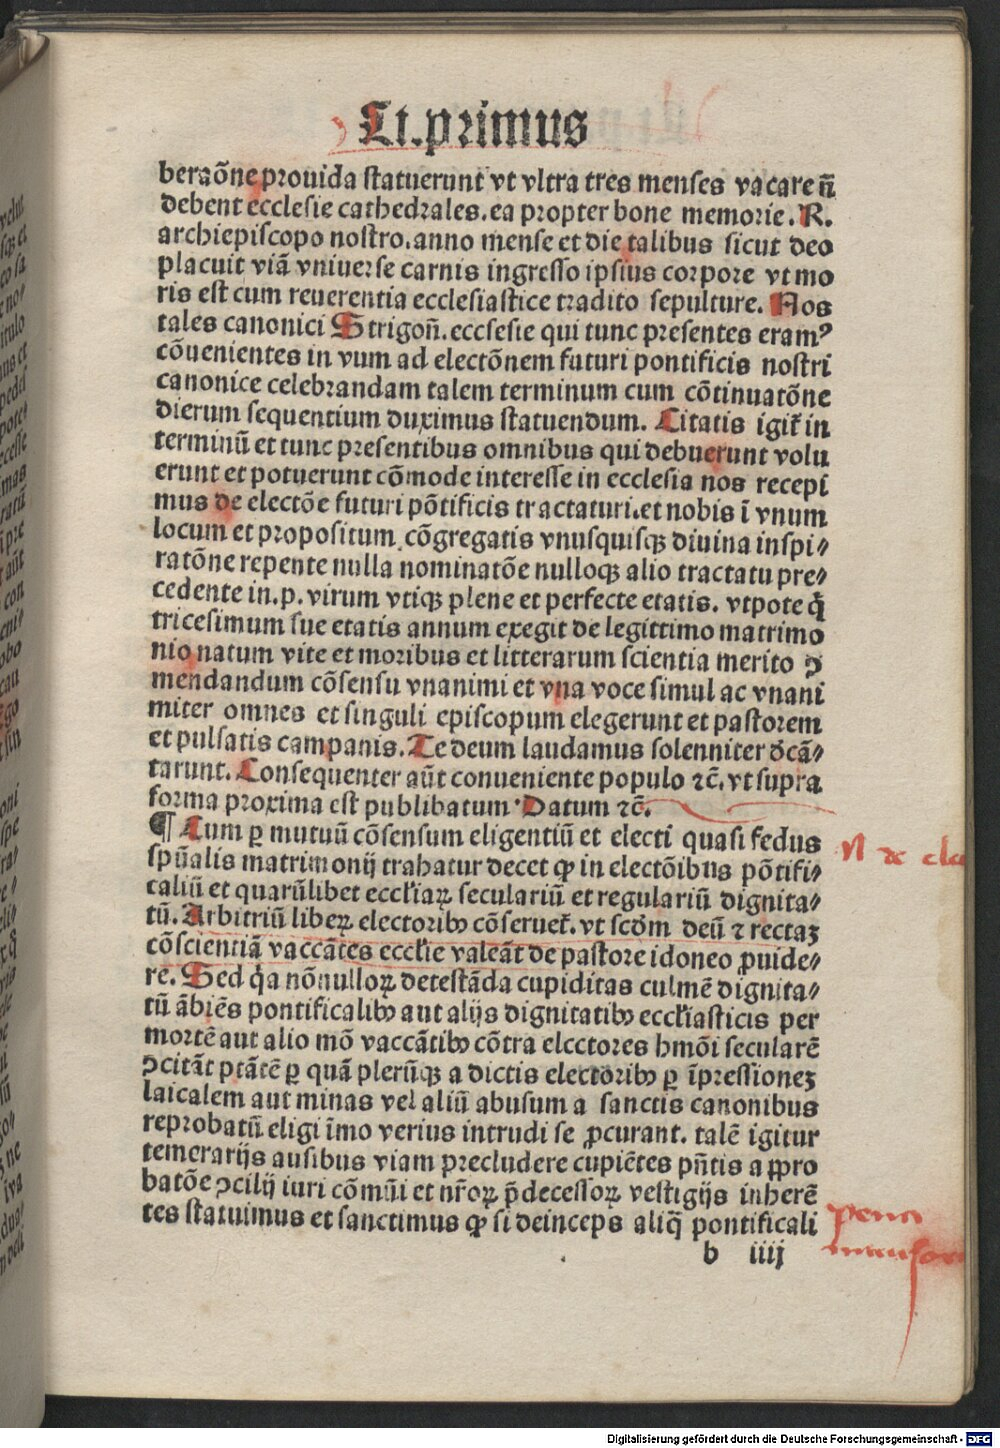 Lt. primus
beraõne prouida statuerunt vt vltra tres menses vacare ñ
debent ecclesie cathedrales. ea propter bone memorie. R.
archiepiscopo nostro. anno mense et die talibus sicut deo
placuit viã vniuerse carnis ingresso ipsius corpore vt mo
ris est cum reuerentia ecclesiastice tradito sepulture. Nos
tales canonici Strigoñ. eccsesie qui tunc presentes eramꝰ
cõuenientes in vum ad electõnem futuri pontificis nostri
canonice celebrandam talem terminum cum cõtinuatõne
dierum sequentium duximus statuendum. Citatis igit̃ in
terminũ et tunc presentibus omnibus qui debuerunt volu
erunt et potuerunt cõmode interesse in ecclesia nos recepi
mus de electõe futuri põtificis tractaturi. et nobis ĩ vnum
locum et propositum cõgregatis vnusquisqꝫ diuina inspi⸗
ratõne repente nulla nominatõe nulloqꝫ alio tractatu pre⸗
cedente in. p. virum vtiqꝫ plene et perfecte etatis. vtpote q̃
tricesimum sue etatis annum exegit de legittimo matrimo
nio natum vite et moribus et litterarum scientia merito ꝯ
mendandum cõsensu vnanimi et vna voce simul ac vnani
miter omnes et singuli episcopum elegerunt et pastorem
et pulsatis campanis. Te deum laudamus solenniter dcã⸗
tarunt. Consequenter aũt conueniente populo ⁊c̃. vt supra
forma proxima est publibatum. Datum ⁊c̃.
¶ Cum ꝑ mutuũ cõsensum eligentiũ et electi quasi fedus
spũalis matrimonij trahatur decet ꝙ in electõibus põtifi⸗
caliũ et quarũlibet eccl̃iaꝝ seculariũ et regulariũ dignita⸗
tũ. Arbitriũ libeꝝ electoribꝫ cõseruet̃. vt scdm deũ ⁊ rectaꝫ
cõscientiã vaccãtes eccl̃ie valeãt de pastore idoneo ꝓuide⸗
re. Sed q̃a nõnulloꝝ detestãda cupiditas culmẽ dignita⸗
tũ ãbiẽs pontificalibꝫ aut alijs dignitatibꝫ eccl̃iasticis per
mortẽ aut alio mõ vaccãtibꝫ cõtra elcctores hmõi secularẽ
ꝯcitãt ptãtẽ ꝑ quã plerũqꝫ a dictis electoribꝫ ꝑ ĩpressioneꝫ
laicalem aut minas vel aliũ abusum a sanctis canonibus
reprobatũ eligi ĩmo verius intrudi se ꝓcurant. talẽ igitur
temerarijs ausibus viam precludere cupiẽtes pñtis appro
batõe ꝯcilij iuri cõmũi et nr̃oꝝ p̃decessoꝝ vestigijs inherẽ
tes statuimus et sanctimus ꝙ si deinceps aliq̃ pontificali
b iiij
pena